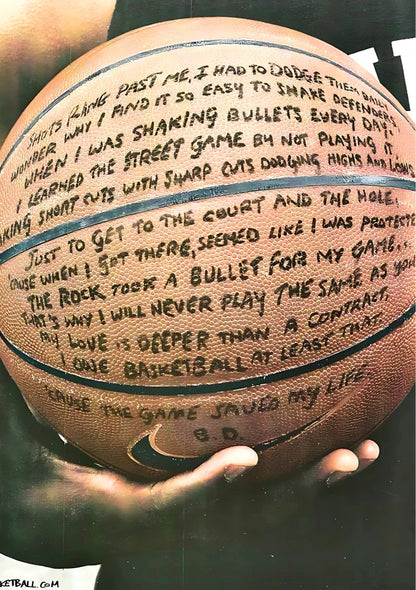 SHOTS RANG PAST ME, I HAD TO DODGE THEM DAILY
WONDER WHY I FIND IT SO EASY TO SHAKE DEFENDERS,
WHEN I WAS SHAKING BULLETS EVERY DAY.
I LEARNED THE STREET GAME BY NOT PLAYING IT,
AKING SHORT CUTS WITH SHARP CUTS DODGING HIGHS AND LOWS
JUST TO GET TO THE COURT AND THE HOLE.
'CAUSE WHEN I GOT THERE, SEEMED LIKE I WAS PROTECTE
THE ROCK TOOK A BULLET FOR MY GAME...
THAT'S WHY I WILL NEVER PLAY THE SAME AS YOU
MY LOVE IS DEEPER THAN A CONTRACT,
I OWE BASKETBALL AT LEAST THAT
'CAUSE THE GAME SAVED MY LIFE.
B.D.
KETBALL.COM